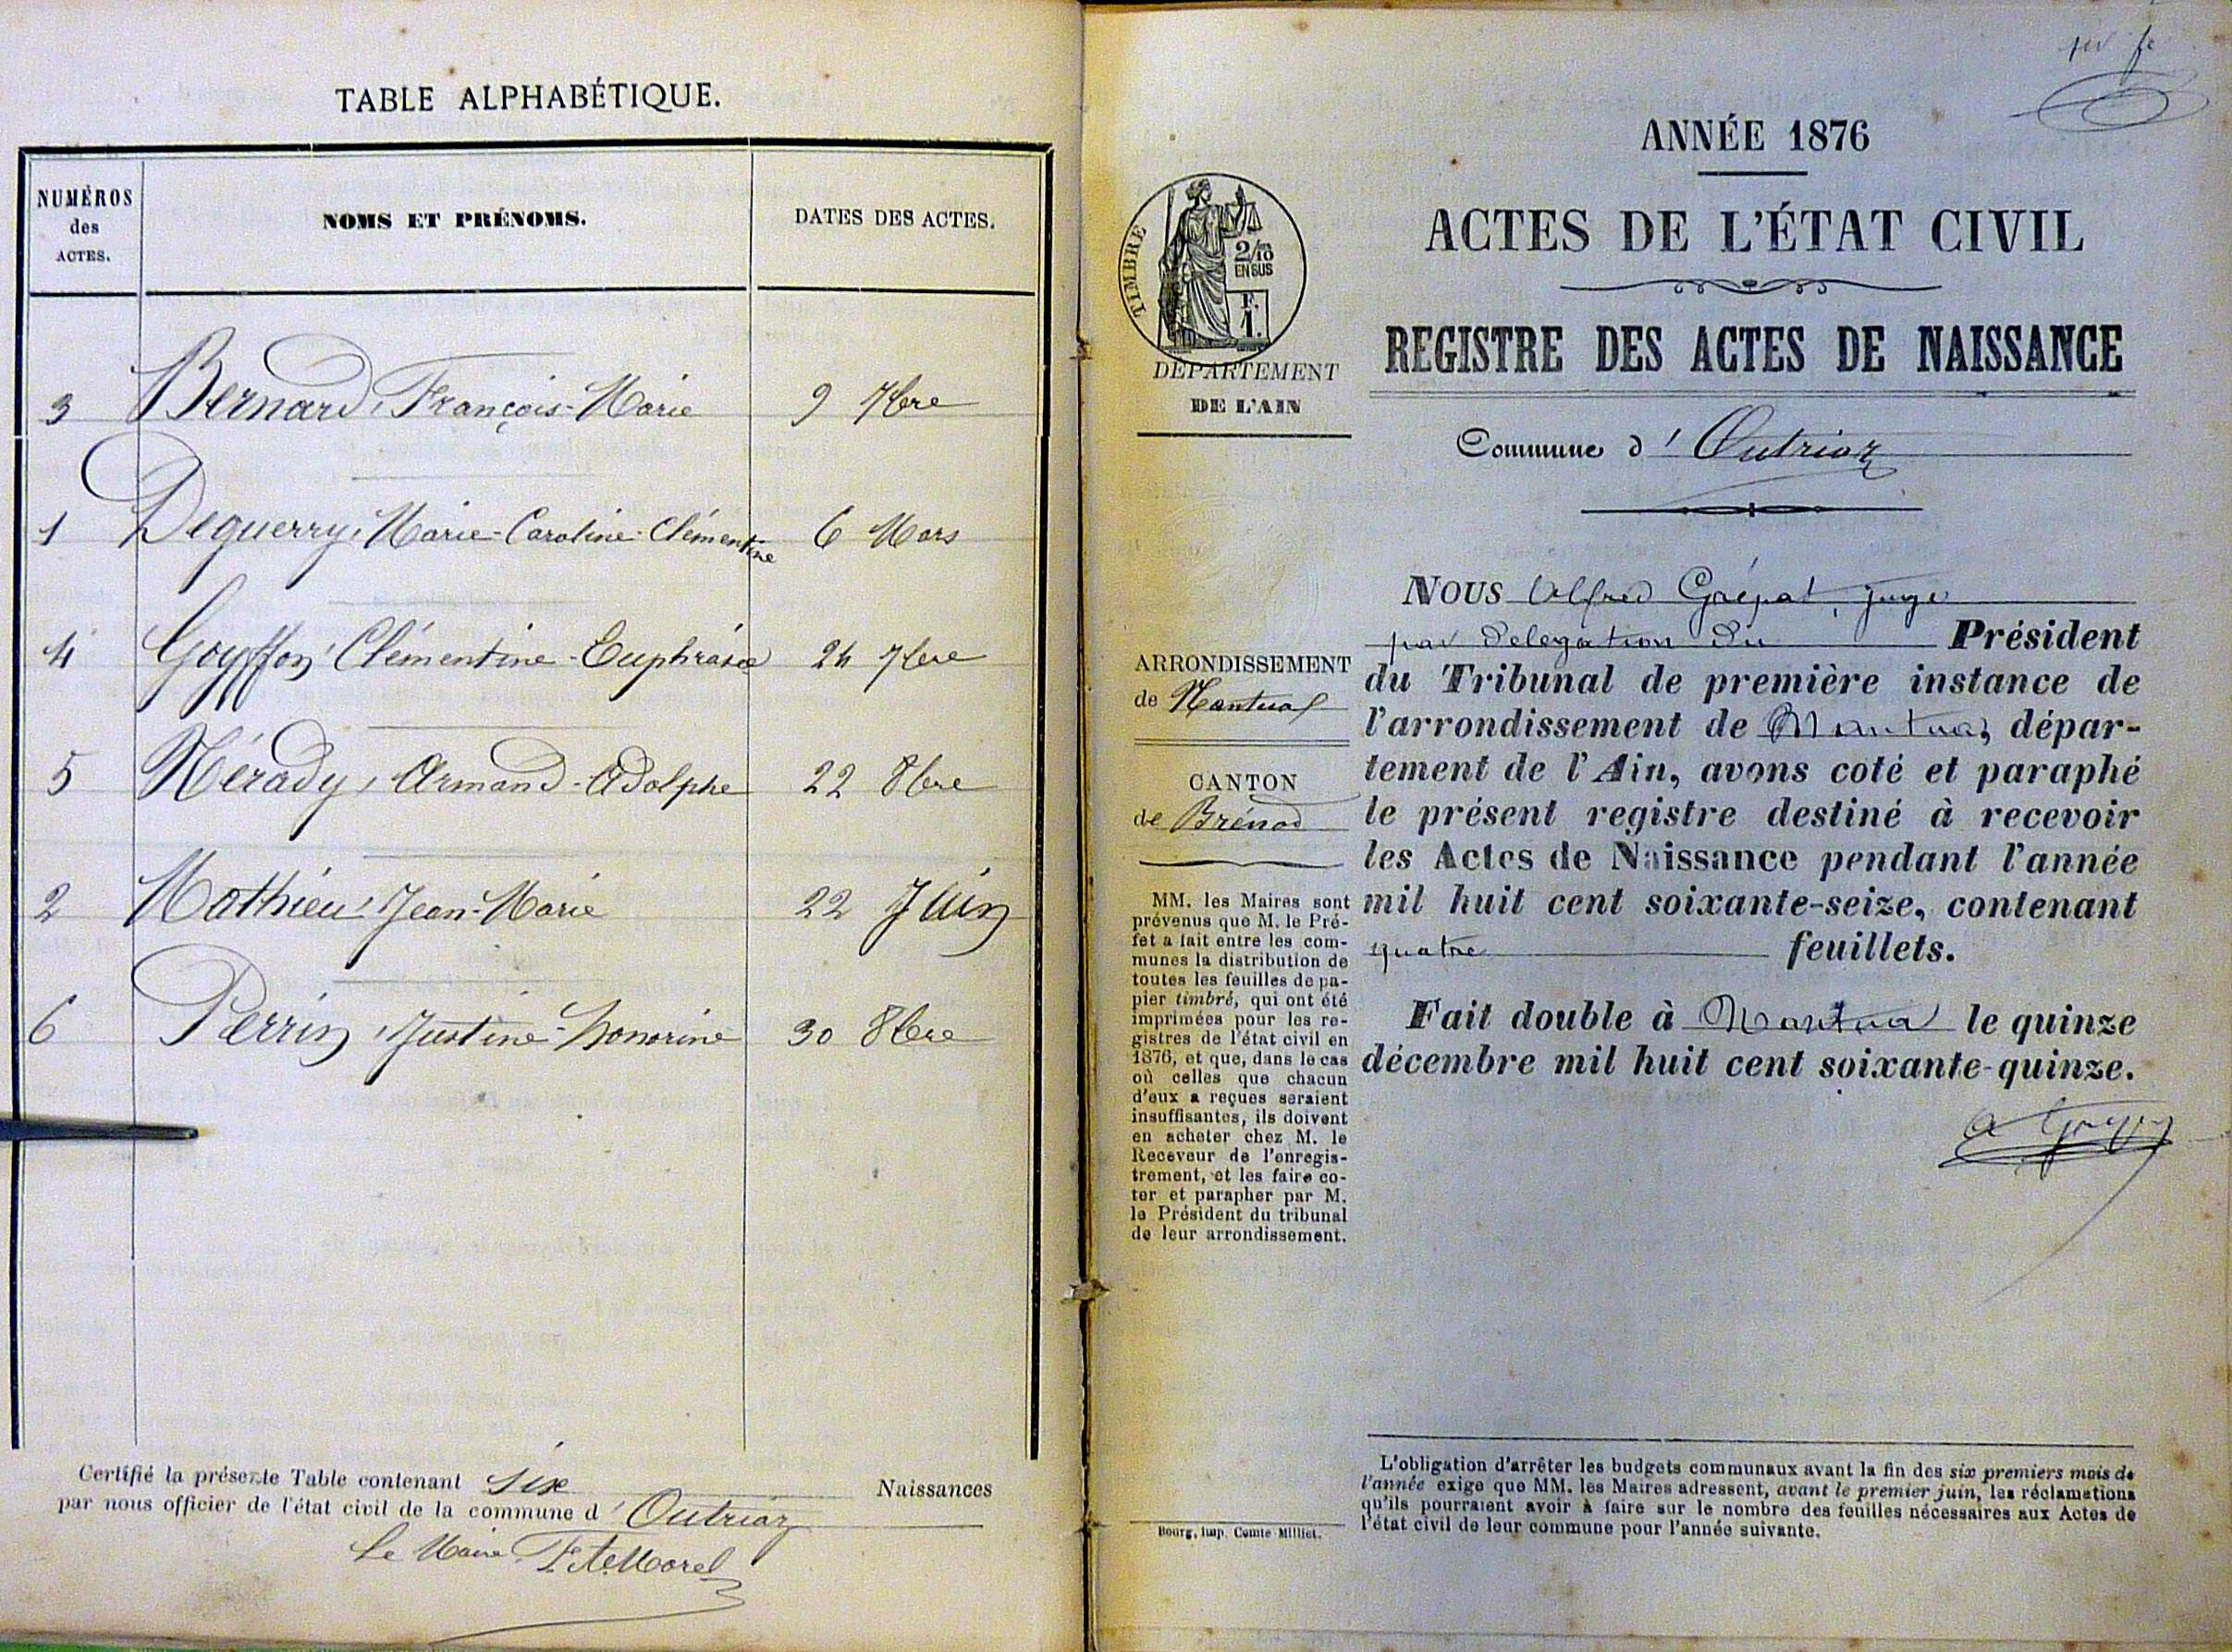 TABLE ALPHABÉTIQUE.
NUMÉROS des ACTES.
NOMS ET PRÉNOMS.
DATES DES ACTES.
3 Bernard, François-Marie 9 7bre
1 Deguerry, Marie-Caroline-Clémentine 6 Mars
4 Goyffon, Clémentine-Euphrasie 24 7bre
5 Mérady, Armand-Adolphe 22 8bre
2 Mathieu, Jean-Marie 22 Juin
6 Perrin, Justine-honorine 30 8bre
Certifié la présente Table contenant six Naissances
par nous officier de l'état civil de la commune d'Outriaz
Le Maire
Morel
ANNÉE 1876
ACTES DE L'ÉTAT CIVIL
REGISTRE DES ACTES DE NAISSANCE
Commune d'Outriaz
TIMBRE
2/10
EN SUS
1 F.
DÉPARTEMENT
DE L'AIN
ARRONDISSEMENT
de Nantua
CANTON
de Brénod
MM. les Maires sont
prévenus que M. le Pré-
fet a fait entre les com-
munes la distribution de
toutes les feuilles de pa-
pier timbré, qui ont été
imprimées pour les re-
gistres de l'état civil en
1876, et que, dans le cas
où celles que chacun
d'eux a reçues seraient
insuffisantes, ils doivent
en acheter chez M. le
Receveur de l'enregis-
trement, et les faire co-
ter et parapher par M.
le Président du tribunal
de leur arrondissement.
Bourg, imp. Comte-Milliet.
NOUS Alfred juge
par delegation du Président
du Tribunal de première instance de
l'arrondissement de Nantua, dépar-
tement de l'Ain, avons coté et paraphé
le présent registre destiné à recevoir
les Actes de Naissance pendant l'année
mil huit cent soixante-seize, contenant
quatre feuillets.
Fait double à Nantua le quinze
décembre mil huit cent soixante-quinze.
L'obligation d'arrêter les budgets communaux avant la fin des six premiers mois de
l'année exige que MM. les Maires adressent, avant le premier juin, les réclamations
qu'ils pourraient avoir à faire sur le nombre des feuilles nécessaires aux Actes de
l'état civil de leur commune pour l'année suivante.